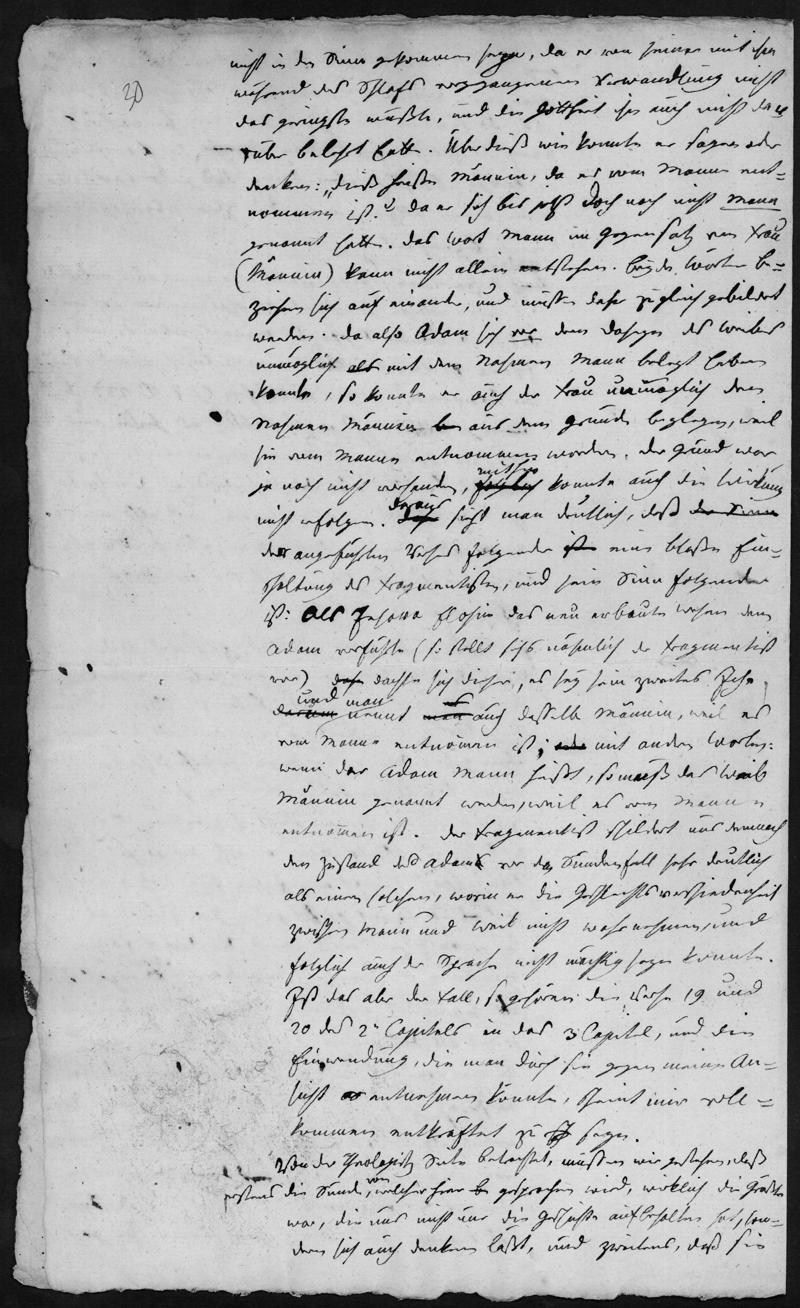 20
nicht in den Sinn gekommen seyn, da er von seiner mit ihm
während des Schlafs vorgegangenen Verwandlung nicht
das geringste wußte, und die Gottheit ihn auch nicht da
rüber belehrt hatte. Überdieß wie konnte er sagen oder
denken: "dieß heiße Männin, da es vom Manne ent-
nommen ist." da er sich bis jetzt doch noch nicht Mann
genannt hatte. Das Wort Mann im Gegensatz von Frau
(Männin) kann nicht allein entstehen. beyde Wörter be-
ziehen sich auf einander, und müssen daher zugleich gebildet
werden. da also Adam sich vor dem Daseyn des Weibes
unmöglich mit dem Nahmen Mann belegt haben
konnte, so konnte er auch der Frau unmöglich den
Nahmen Männin aus dem Grunde beylegen, weil
sie vom Manne entnommen worden. der Grund war
ja noch nicht vorhanden, mithin konnte auch die Wirkung
nicht erfolgen. daraus sieht man deutlich, daß der Sinn
der angeführten Verse folgender ist eine bloße Ein-
schaltung des Fragmentisten, und sein Sinn folgender
ist: Als Jehova Elohim das neu erbaute Wesen dem
Adam vorführte (so stellt sichs nähmlich der Fragmentist
vor) dachte sich dieser, es sey sein zweites Ich,
und man nennt es auch dasselbe Männin, weil es
vom Manne entnom̄en ist; mit andern Worten:
wenn der Adam Mann heißt, so muß das Weib
Männin genannt werden, weil es vom Manne
entnom̄en ist. der Fragmentist schildert uns demnach
den Zustand des Adams vor dem Sündenfall sehr deutlich
als einen solchen, worin er die Geschlechtsverschiedenheit
zwischen Mann und Weib nicht wahrnehmen, und
folglich auch der Sprache nicht mächtig seyn konnte.
Ist das aber der Fall, so gehören die Verse 19 und
20 des 2n Capitels in das 3 Capitel, und die
Einwendung, die man durch sie gegen meine An-
sicht entnehmen könnte, scheint mir voll-
kommen entkräftet zu seyn.
Von der Seite betrachtet, müssen wir gestehen, daß
erstens die Sünde, von welcher hier gesprochen wird, wirklich die größte
war, die uns nicht nur die Geschichte aufbehalten hat, son-
dern sich auch denken läßt, und zweitens, daß sie